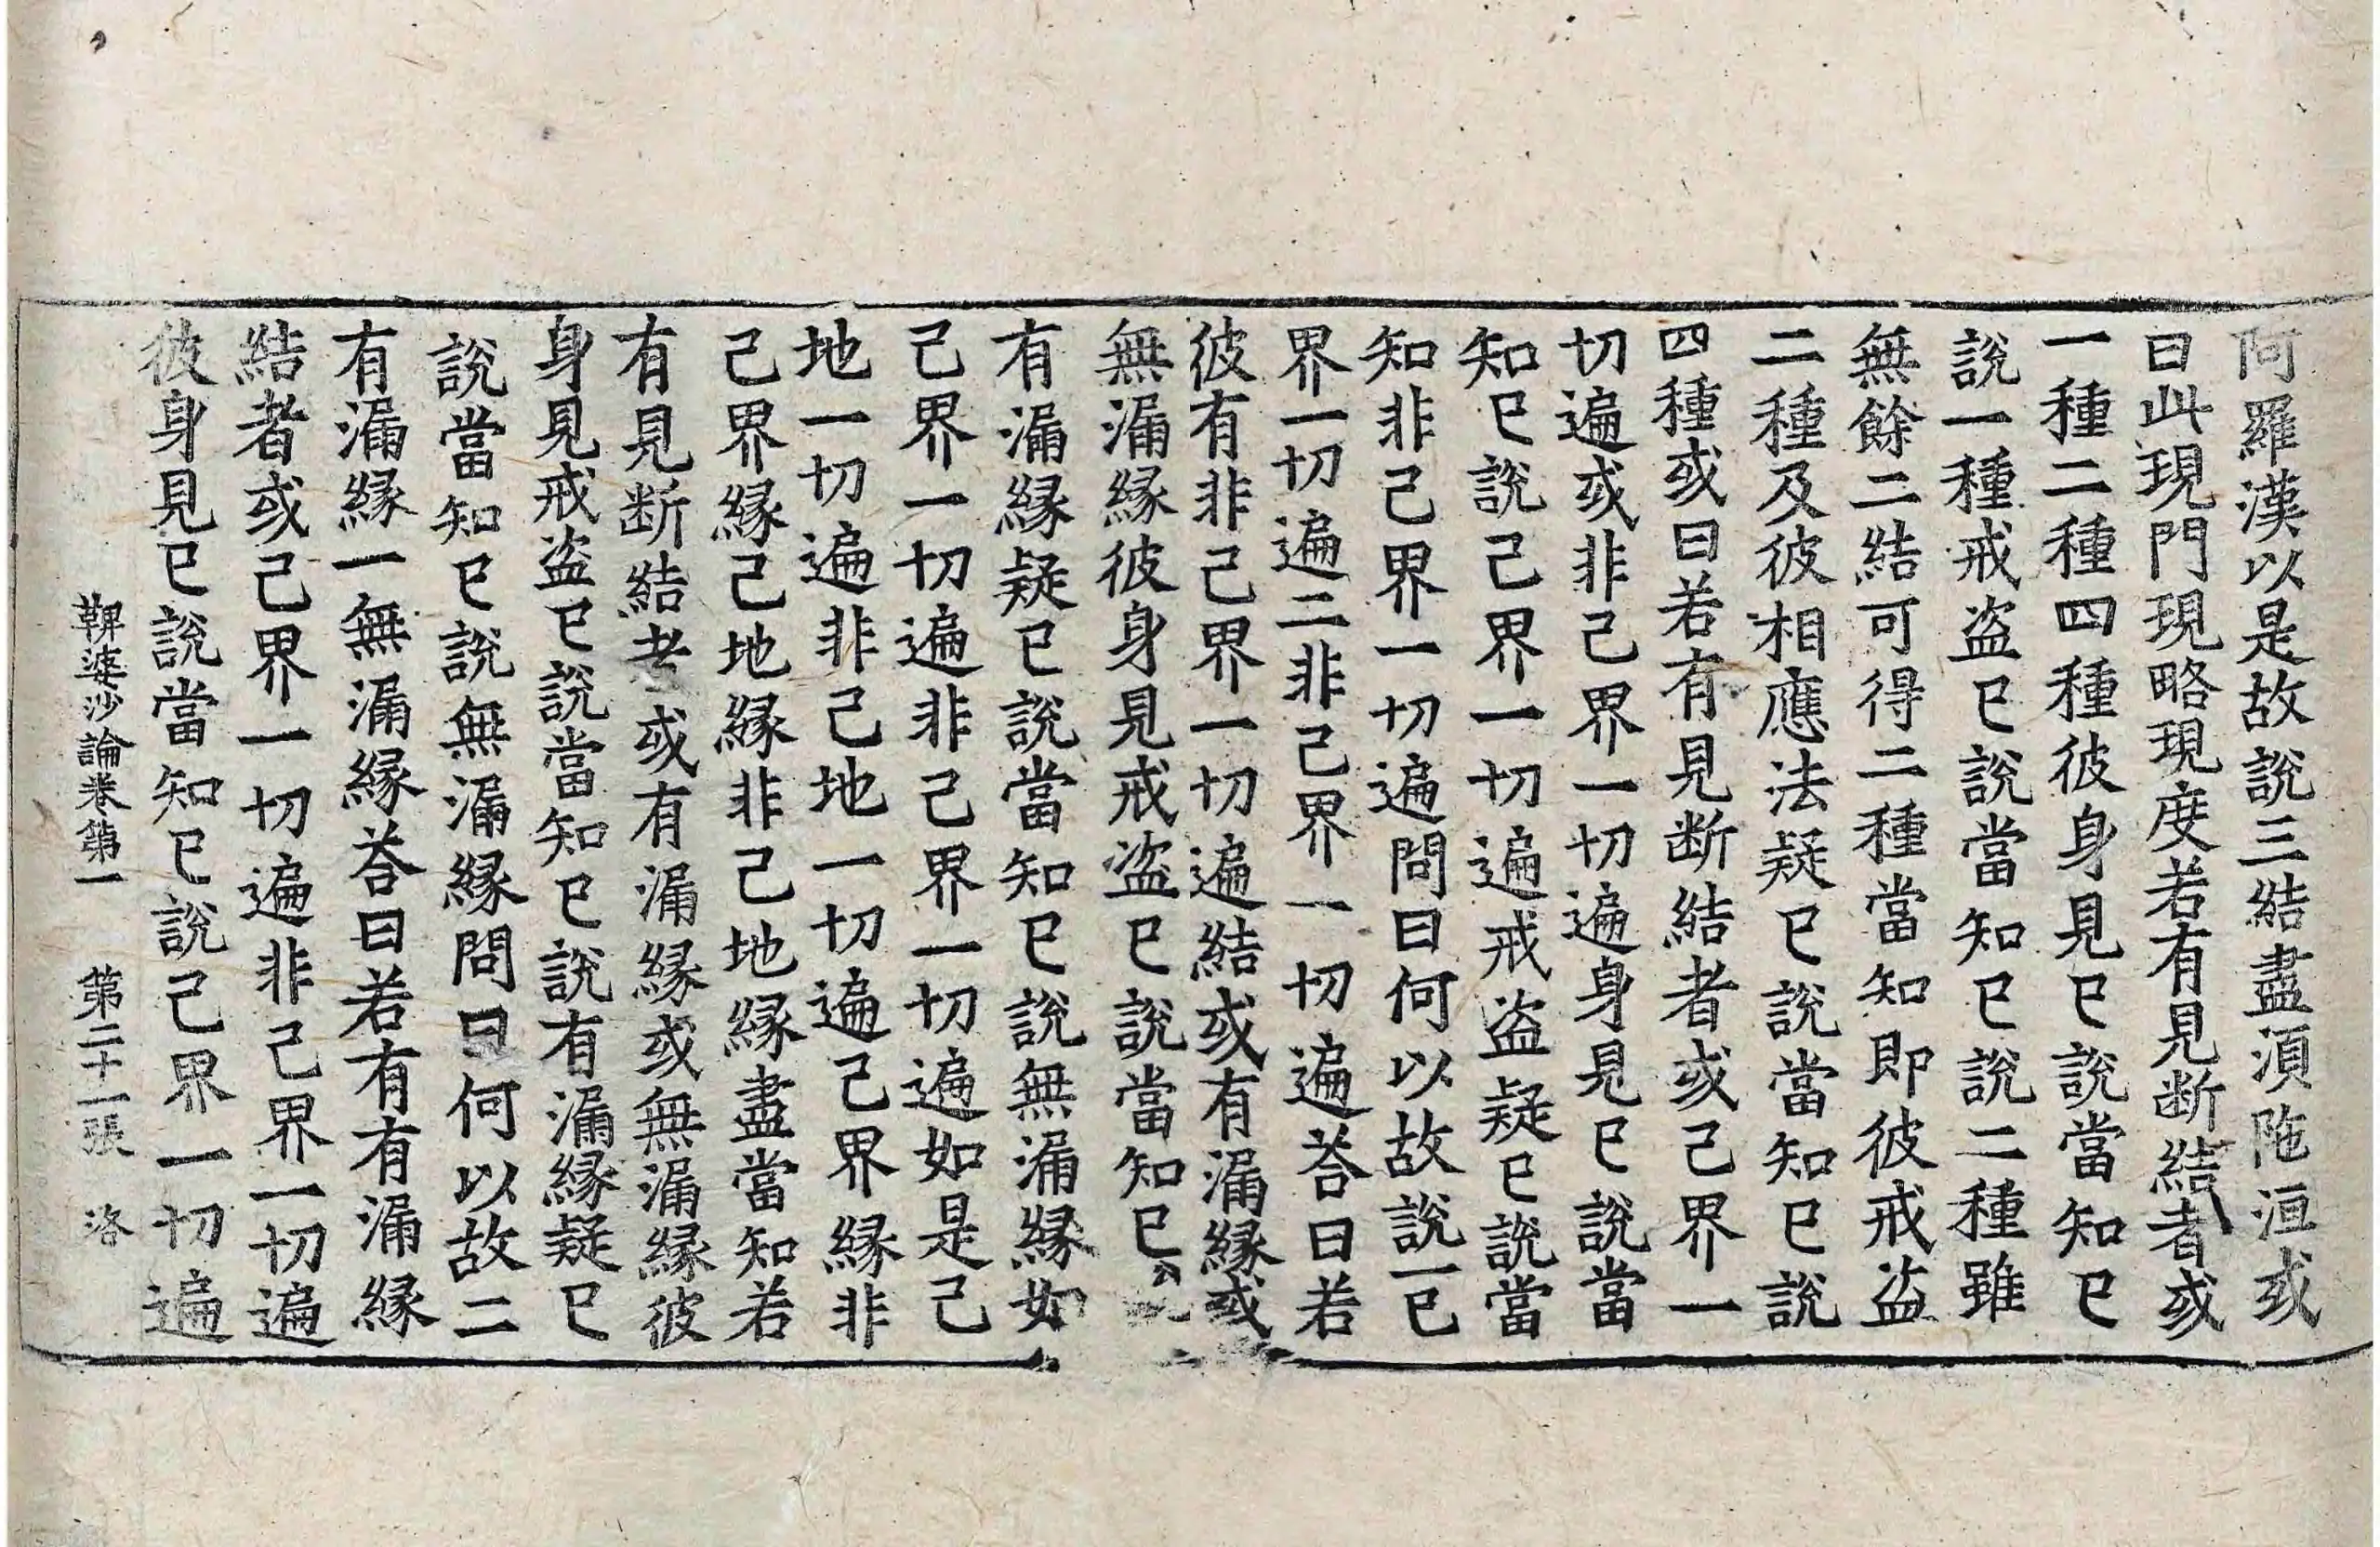 阿羅漢以是故說三結盡湏陁洹或
曰此現門現略現度若有見断結者或
一種二種四種彼身見已說當知已
說一種戒盗已說當知已說二種雖
無餘二結可得二種當知即彼戒盗
二種及彼相應法疑已說當知已說
四種或曰若有見断結者或己界一
切遍或非己界一切遍身見已說當
知已說己界一切遍戒盗疑已說當
知非己界一切遍問曰何以故說一已
界一切遍二非己界一切遍荅曰若
彼有非己界一切遍結或有漏縁或
無漏縁彼身見戒盗已說當知已
有漏縁疑已說當知已說無漏縁如
己界一切遍非己界一切遍如是己
地一切遍非己地一切遍己界縁非
己界縁己地縁非己地縁盡當知若
有見断結者或有漏縁或無漏縁彼
身見戒盗已說當知已說有漏縁疑已
說當知已說無漏縁問曰何以故二
有漏縁一無漏縁荅曰若有有漏縁
結者或己界一切遍非己界一切遍
彼身見已說當知已說己界一切遍
鞞婆沙論卷第一 第二十一張 洛